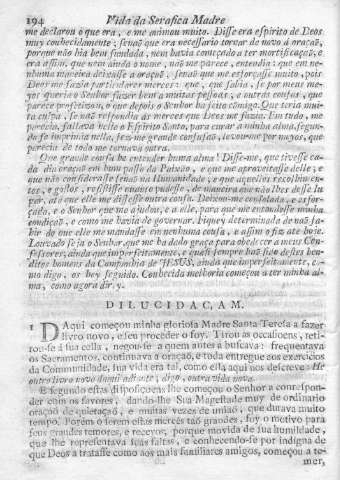 194 Vida da Serafica Madre
me declarou o que era, e me animou muito. Disse era espirito de Deos
muy conhecidamente; senaõ que era necessario tornar de novo á oraçaõ,
porque naõ hia bem fundada, nem havia começado a ter mortificaçaõ, e
era assim, que nem ainda o nome, naõ me parece, entendia: que em ne-
nhuma maneira deixasse a oraçaõ, senaõ que me esforçasse muito, pois
Deos me fazia particulares merces: que, que sabia, se por meus me-
yos queria o Senhor fazer bem a muitas pessoas, e outras cousas, que
parece profetizou, o que depois o Senhor ha feito cõmigo. Que teria mui-
ta culpa, se naõ respondia ás merces que Deos me fazia. Em tudo, me
parecia, fallava nelle o Espirito Santo, para curar a minha alma, segun-
do se imprimia nella, fez-me grande confusaõ, levou-me por meyos, que
parecia de todo me tornava outra.
Que grande cousa he entender huma alma! Disse-me, que tivesse ca-
da dia oraçaõ em hum passo da Paixaõ, e que me aproveitasse delle, e
que naõ considerasse senaõ na Humanidade, e que aquelles recolhimen-
tos, e gostos, resistisse quanto pudesse, de maneira que naõ lhes desse lu-
gar, até que elle me dissesse outra cousa. Deixou-me consolada, e esfor-
çada, e o Senhor que me ajudou, e a elle, para que me entendesse minha
condiçaõ, e como me havia de governar. Fiquey determinada de naõ sa-
hir do que elle me mandasse em nenhuma cousa, e assim o fiz até hoje.
Louvado seja o Senhor, que me ha dado graça para obedecer a meus Con-
fessores, ainda que imperfeitamente, e quasi sempre haõ sido destes ben-
ditos homens da Companhia de JESUS, ainda que imperfeitamente, co-
mo digo, os hey seguido. Conhecida melhoria começou a ter minha al-
ma, como agora direy.
DILUCIDAÇAM.
1 DAqui começou minha gloriosa Madre Santa Teresa a fazer
livro novo, e seu proceder o foy. Tirou as occasioens, reti-
rou-se á sua cella, negou-se a quem antes a buscava: frequentava
os Sacramentos, continuava a oraçaõ, e toda entregue aos exercicios
da Communidade, sua vida era tal, como ella aqui nos descreve: He
outro livro novo daqui adiante; digo, outra vida nova.
E segundo estas disposiçoens lhe começou o Senhor a correspon-
der com os favores, dando-lhe Sua Magestade muy de ordinario
oraçaõ de quietaçaõ, e muitas vezes de uniaõ, que durava muito
tempo. Porém o serem estas mercês taõ grandes, foy o motivo para
seus grandes temores, e receyos, porque movida de sua humildade,
que lhe representava suas faltas, e conhecendo-se por indigna de
que Deos a tratasse como aos mais familiares amigos, começou a te-
mer,